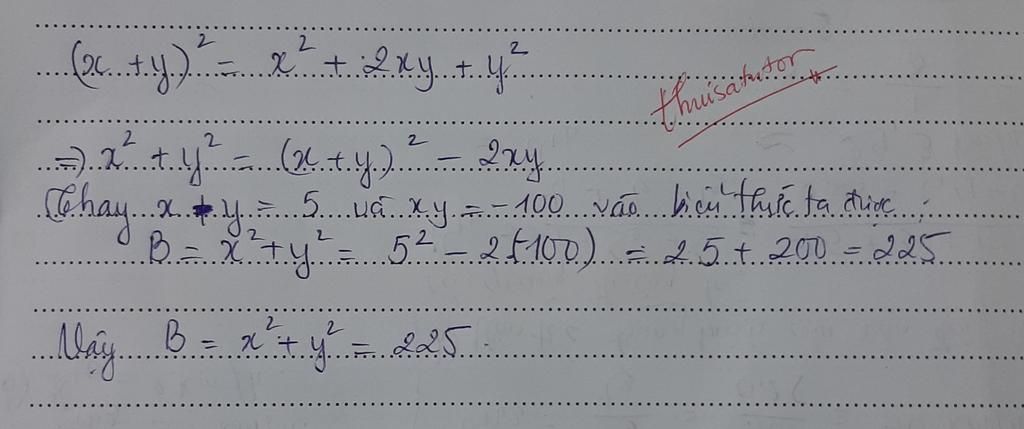 (x + y)² = x² + 2xy + y²
thuisatutor
=> x² + y² = (x + y)² - 2xy
Thay x + y = 5 và xy = -100 vào biểu thức ta được :
B = x² + y² = 5² - 2(-100) = 25 + 200 = 225
Vậy B = x² + y² = 225